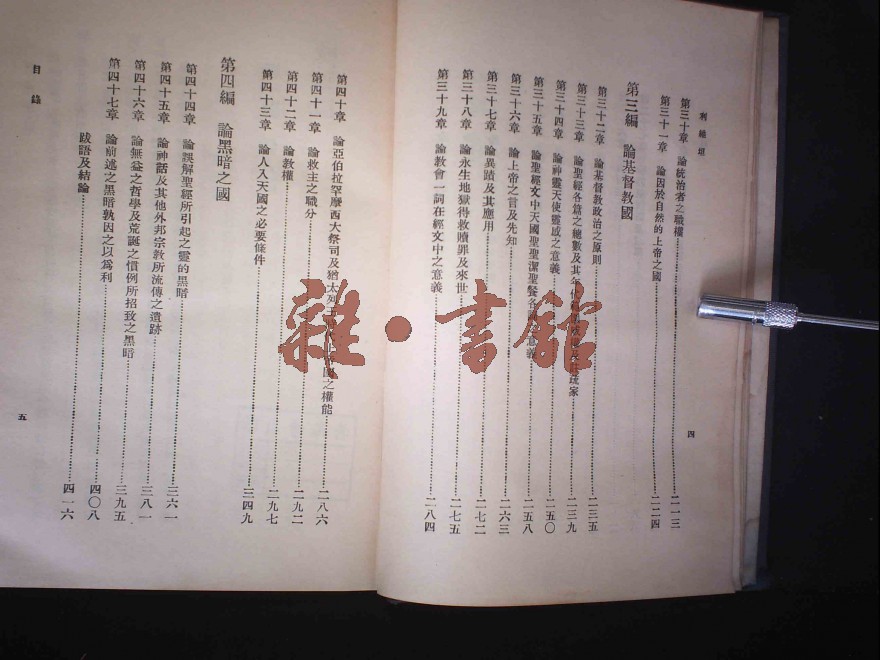 利維坦
第三十章 論統治者之職權 二一三
第三十一章 論因於自然的上帝之國 二二四
第三編 論基督教國
第三十二章 論基督教政治之原則 二三五
第三十三章 論聖經各篇之總數及其年代 家 二三九
第三十四章 論神靈天使靈感之意義 二五〇
第三十五章 論聖經文中天國聖聖潔聖餐各 意義 二五八
第三十六章 論上帝之言及先知 二六三
第三十七章 論異蹟及其應用 二七二
第三十八章 論永生地獄得救贖罪及來世 二七五
第三十九章 論教會一詞在經文中之意義 二八四
四
第四十章 論亞伯拉罕摩西大祭司及猶太列 之權能 二八六
第四十一章 論救主之職分 二九二
第四十二章 論教權 二九七
第四十三章 論人入天國之必要條件 三四九
第四編 論黑暗之國
第四十四章 論誤解聖經所引起之靈的黑暗 三六一
第四十五章 論神話及其他外邦宗教所流傳之遺跡 三八一
第四十六章 論無益之哲學及荒誕之慣例所招致之黑暗 三九五
第四十七章 論前述之黑暗孰因之以爲利 四〇八
跋語及結論 四一六
目錄
五
雜·書館